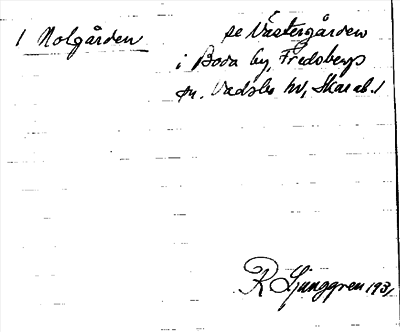 1 Nolgården se Västergården
i Boda by, Fredsbergs
sn. Vadsbo hd, Skarab. l
R Ljunggren 1931